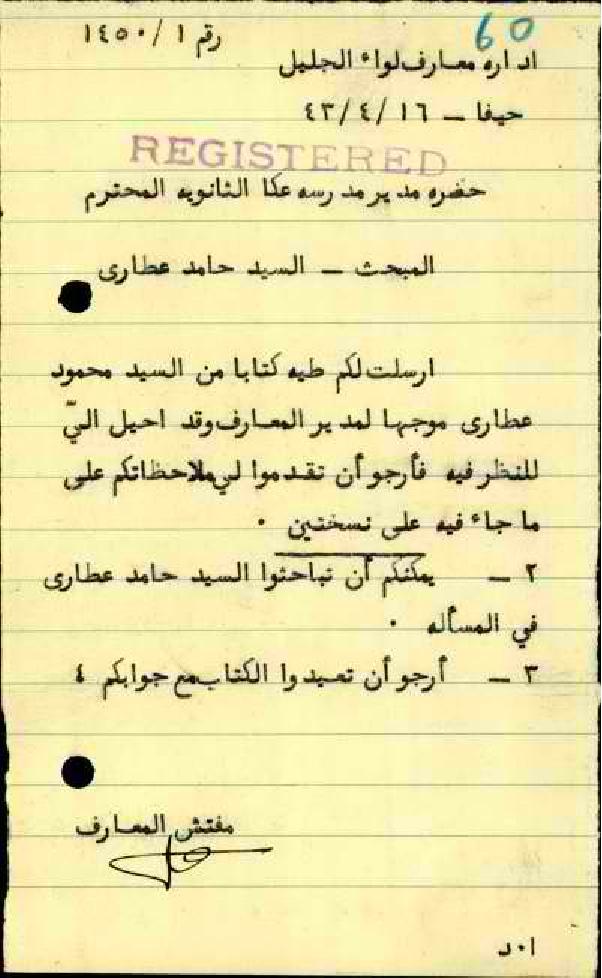 60
رقم ١٤٥٠/١
اداره معارف لواء الجليل
حيفا – ٤٣/٤/١٦
REGISTERED
حضره مدير مدرسه عكا الثانويه المحترم
المبحث – السيد حامد عطارى
ارسلت لكم طيه كتابا من السيد محمود
عطارى موجها لمدير المعارف وقد احيل اليّ
للنظر فيه فأرجو أن تقدموا لي ملاحظاتكم على
ما جاء فيه على نسختين ٠
٢ – يمكنكم أن تباحثوا السيد حامد عطارى
في المسأله ٠
٣ – أرجو أن تعيدوا الكتاب مع جوابكم ٤
مفتش المعارف
ا٠د